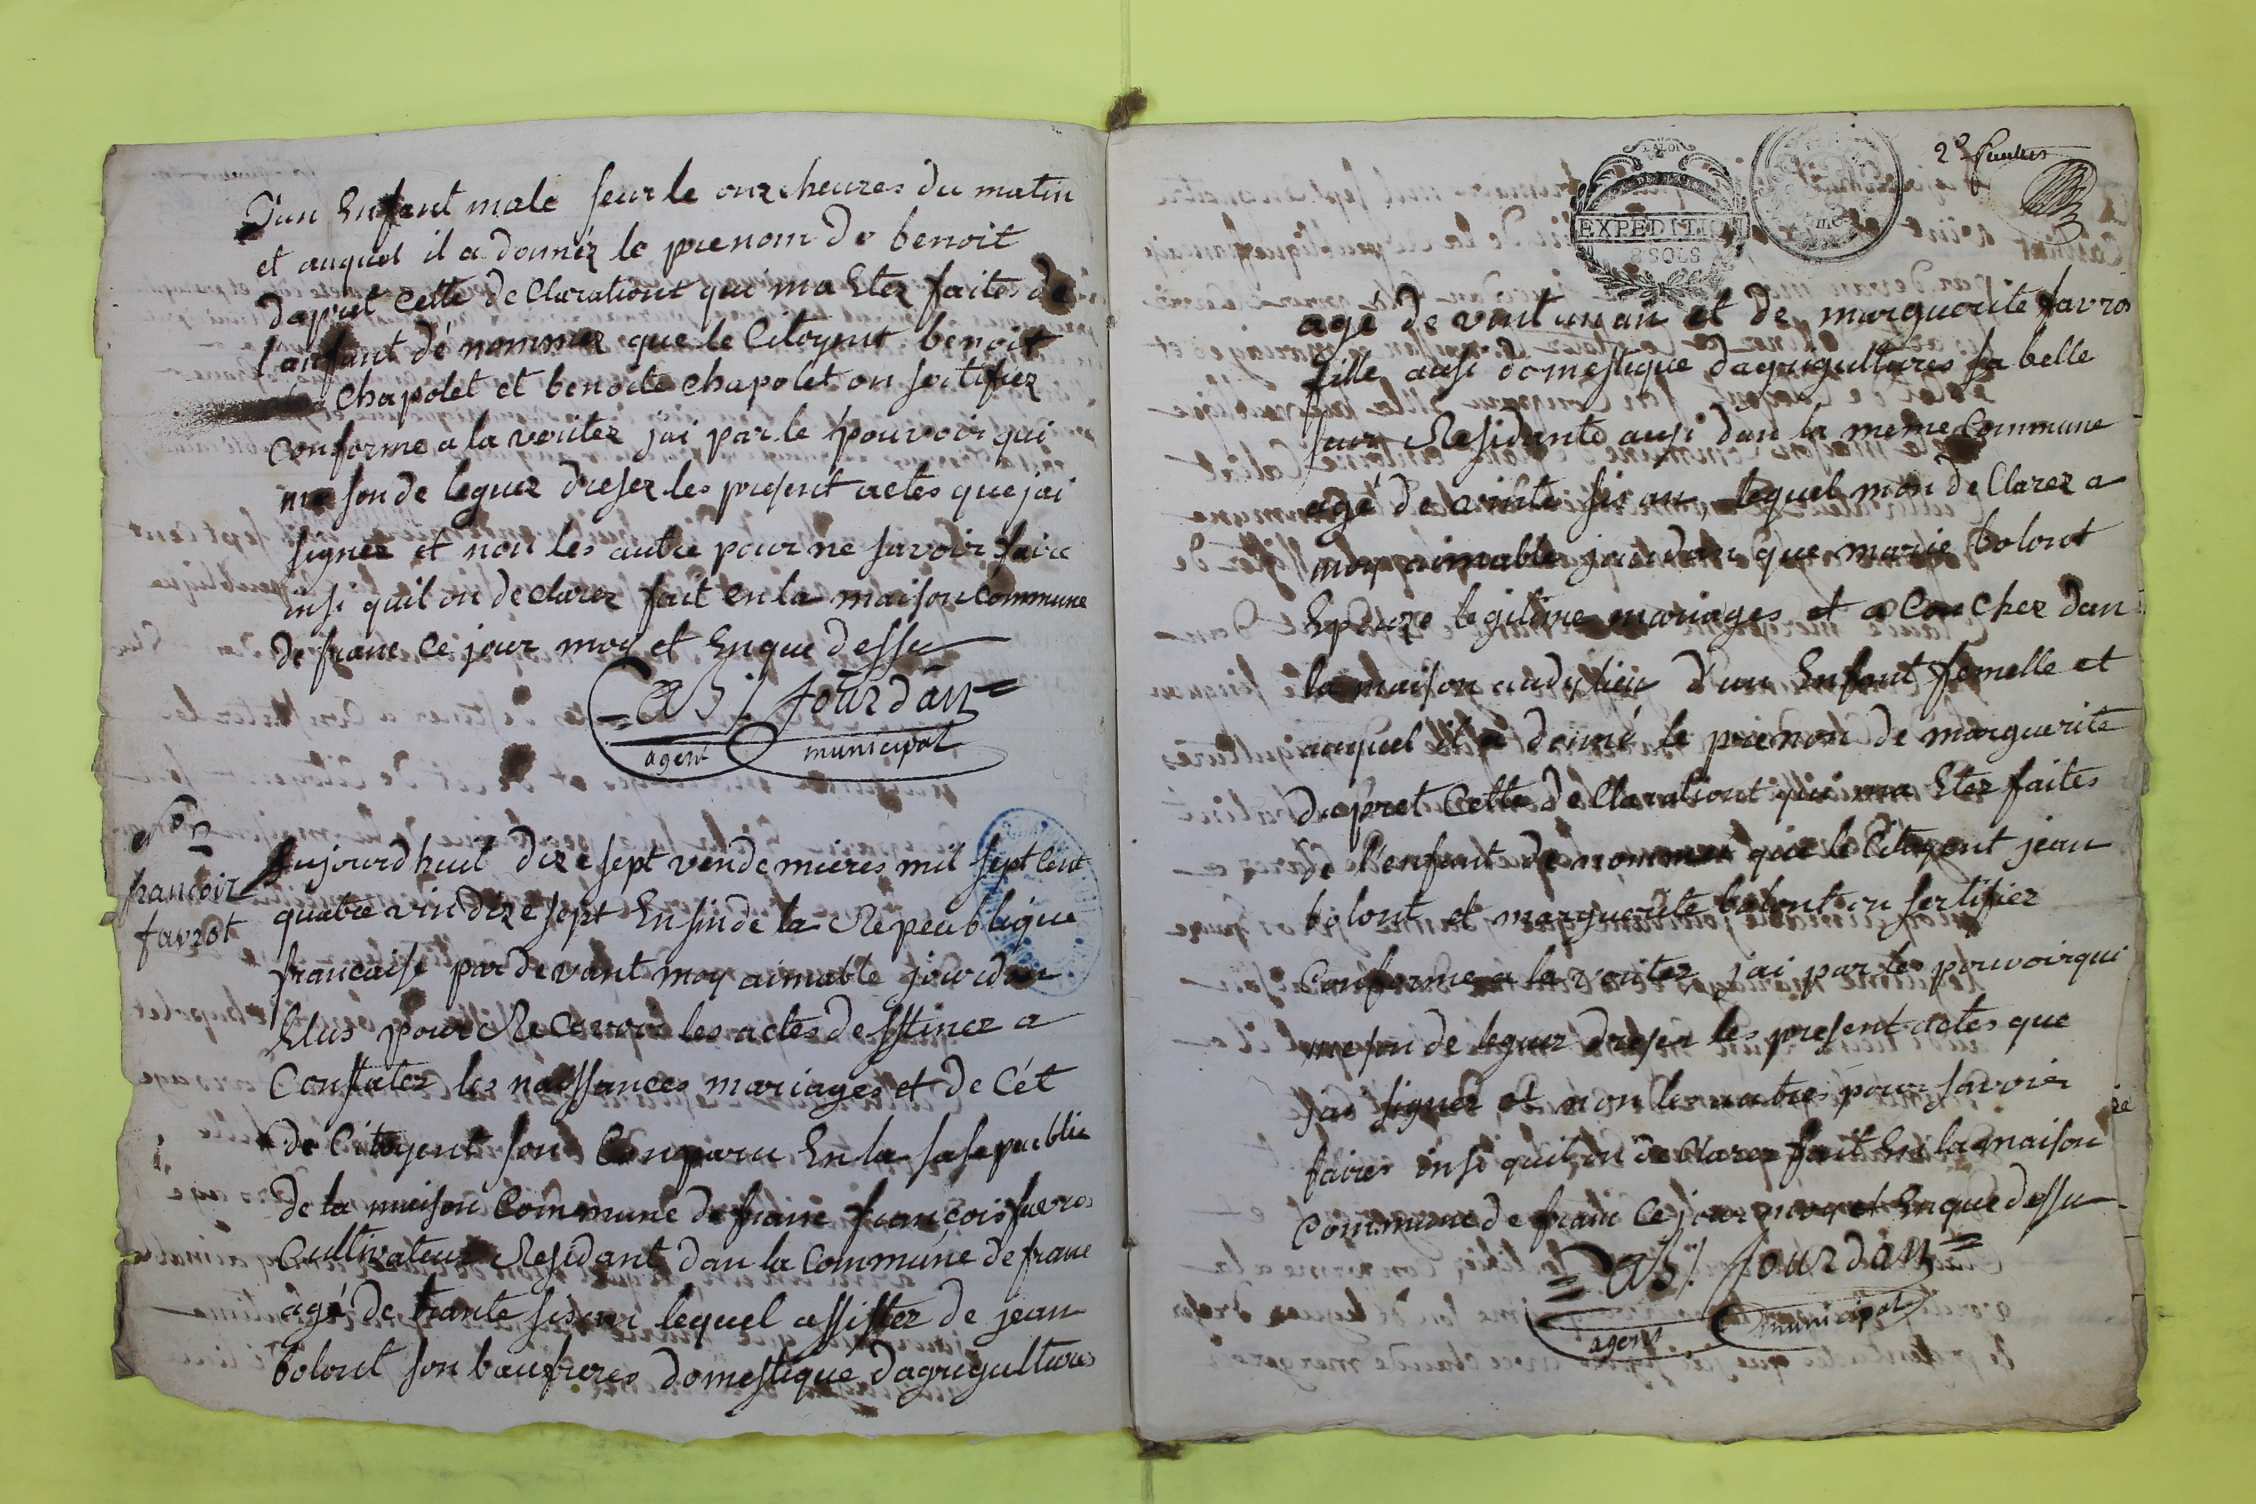 D'un Enfant male seur le onze heures du matin
et auquel il a donnéz le prenom de benoit
dapret Cette de Clarationt qui ma Etez faites de
l'anfant dé nommez que le Citoyent benoit
Chapolet et benoite chapolet on sertifiez
Conforme a la veritez jai par le pouvoir qui
me son de leguez dresez les present actes que jai
signez et non les autre pour ne savoir faire
insi quil on declarez fait en la maison Commune
de frane Ce jour moy et Enque dessu
Jourdan
agent municipal
No 2
francoiz
favrot
Aujourdhuit dize sept vendemieres mil sept Cent
quatre vin dize sept En sin de la Republique
francaise par devant moy aimable jourdan
Elus pour Recevoir les actes desstinez a
Constatez les naissances mariages et de Cét
de Citoyent son Comparu En la sale publie
de la maison Commune de frane francois favros
Cultivateur Residant dan la Commune de frane
agé de trante sis an lequel assistez de jean
bolont son baufreres domestique dagrigultures
2e feuillet
EXPEDITION
8 SOLS
agé de vint un an et de marguerite favros
fille ausi domestique dagrigultures sa belle
seur Residante ausi dan la meme Commune
agé de vinte sis an, lequel mon de Clarez a
moy aimable jourdan que marie bolont
Epouze legitime mariages et a Couchez dan
la maison audy lieu d'un Enfant femelle et
auquel il a donné le prenon de marguerite
dapret Cette de Clarationt qui ma Etez faites
de l'enfant de nommez que le Citoyent jean
bolont et marguerite bolont on sertifiez
Conforme a la veritez jai par les pouvoir qui
me son de leguez dresez les present actes que
jai signez et non les autres pour savoir
faires insi quil on declarez fait En la maison
Commune de frane Ce jour moy et Enque dessu
Jourdan
agent municipal